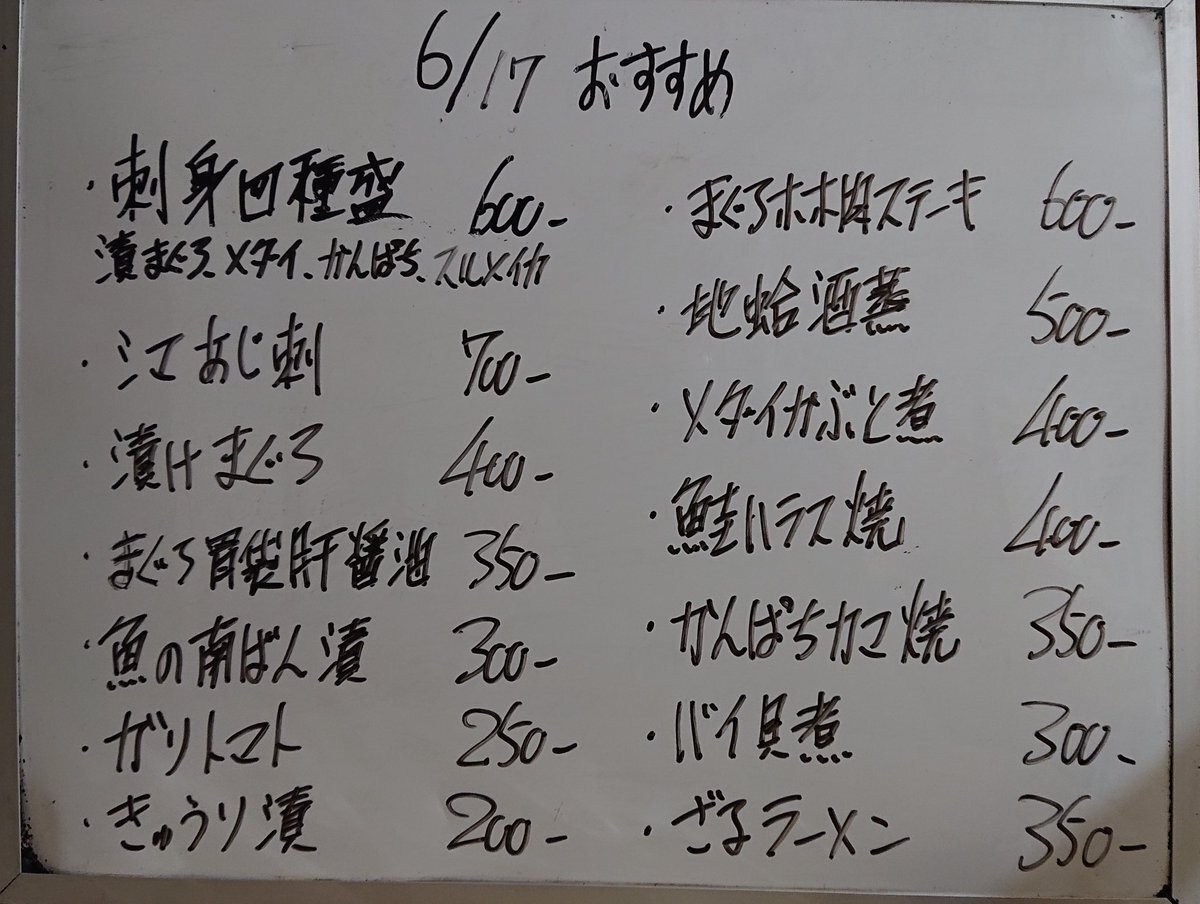 6/17 おすすめ
・刺身四種盛 600-
漬まぐろ、メダイ、かんぱち、スルメイカ
・シマあじ刺 700-
・漬けまぐろ 400-
・まぐろ胃袋肝醤油 350-
・魚の南ばん漬 300-
・ガリトマト 250-
・きゅうり漬 200-
・まぐろホホ肉ステーキ 600-
・地蛤酒蒸 500-
・メダイかぶと煮 400-
・鮭ハラス焼 400-
・かんぱちカマ焼 350-
・バイ貝煮 300-
・ざるラーメン 350-